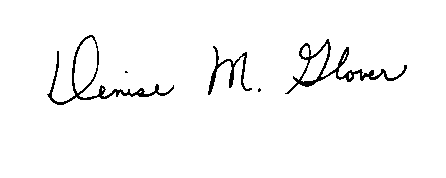 Denise M. Glover